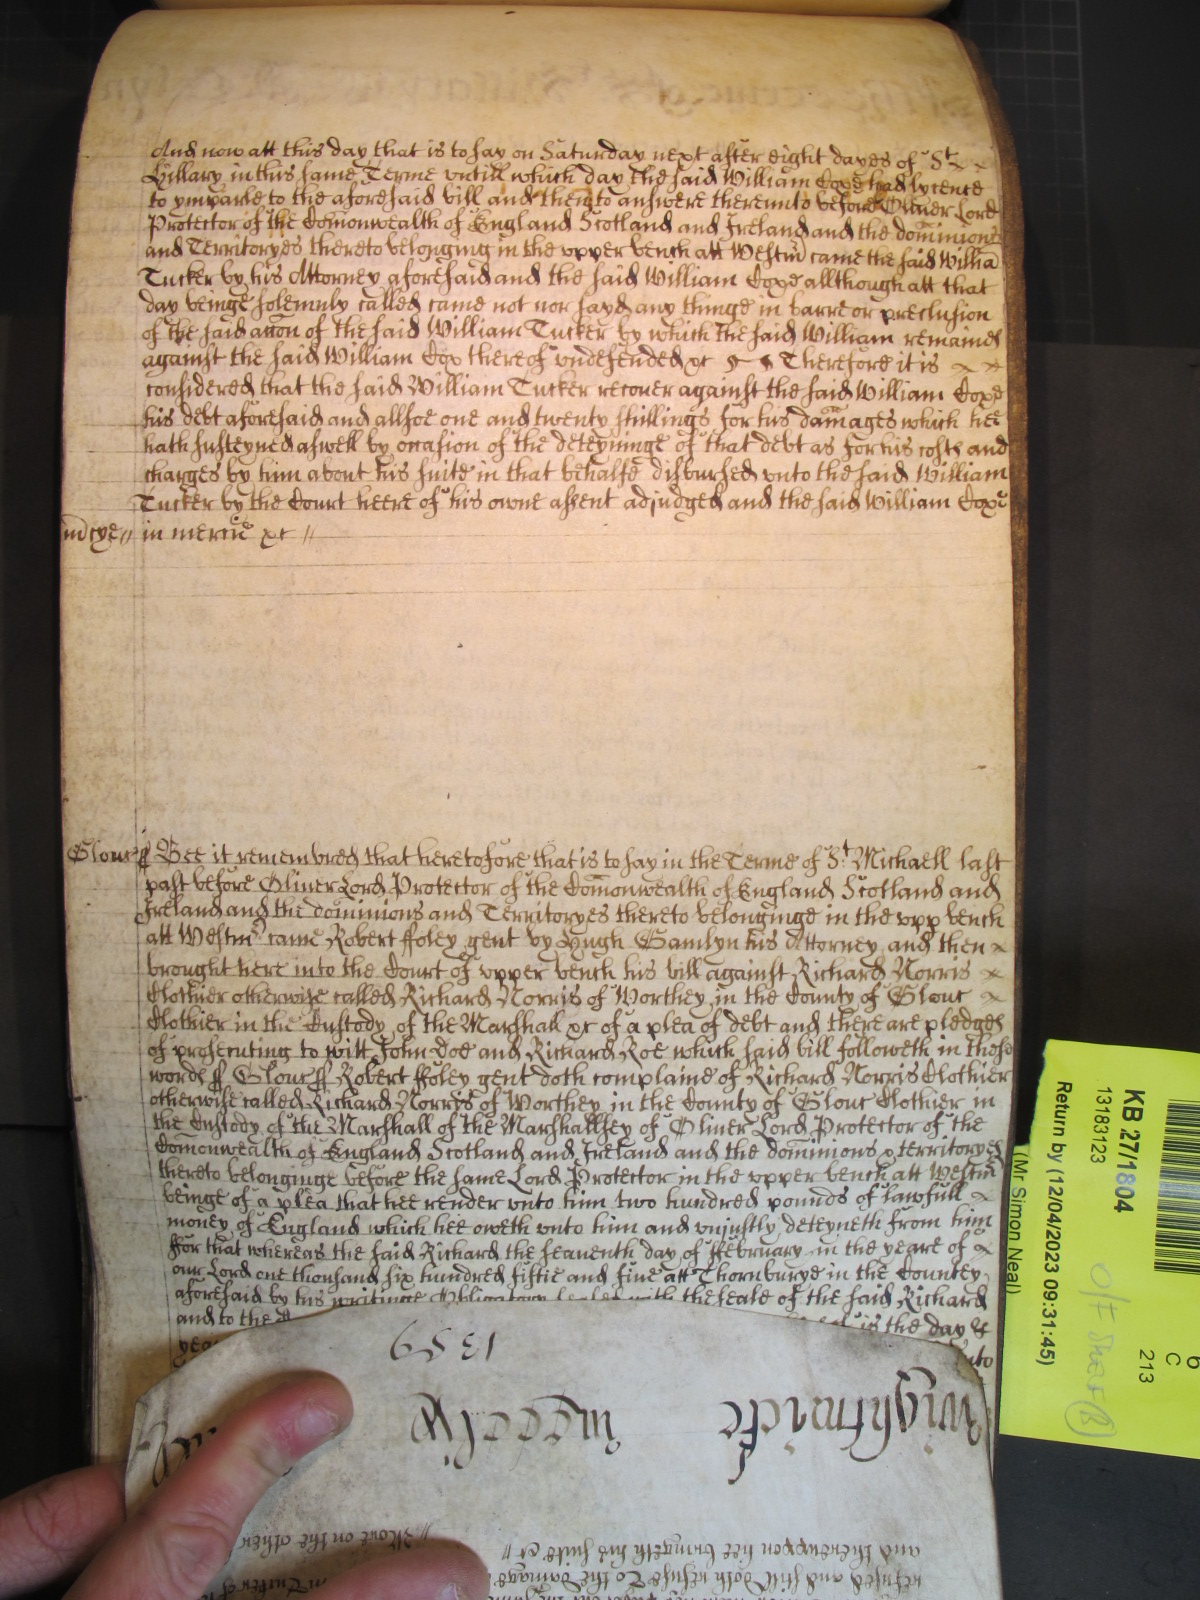 And now att this day that is to say on Saturday next after eight dayes of St
Hillary in this same Terme untill which day the said William Coxe had lycence
to ymparle to the aforesaid bill and then to answere thereunto before Oliver Lord
Protector of the Comonwealth of England Scotland and Ireland and the dominions
and Territoryes thereto belonging in the upper bench att Westm came the said Willia
Tucker by his Attorney aforesaid and the said William Coxe allthough att that
day beinge solemnly called came not nor sayd any thinge in barre or preclusion
of the said accon of the said William Tucker by which the said William remaines
against the said William Cox thereof undefended &c Therefore it is
considered that the said William Tucker recover against the said William Coxe
his debt aforesaid and allsoe one and twenty shillings for his damages which hee
hath susteyned aswell by occasion of the deteyninge of that debt as for his costs and
charges by him about his suite in that behalfe disbursed unto the said William
Tucker by the Court heere of his owne assent adjudged and the said William Coxe
in mercie &c //
Glouc ss Bee it remembred that heretofore that is to say in the Terme of St Michaell last
past before Oliver Lord Protector of the Comonwealth of England Scotland and
Ireland and the dominions and Territoryes thereto belonginge in the upp bench
att Westm came Robert ffoley gent by Hugh Hamlyn his Attorney and then
brought here into the Court of upper bench his bill against Richard Norris
Clothier otherwise called Richard Norris of Worthey in the County of Glouc
Clothier in the Custody of the Marshall &c of a plea of debt and there are pledges
of prosecuting to witt John Doe and Richard Roe which said bill followeth in these
words ss Glouc ss Robert ffoley gent doth complaine of Richard Norris Clothier
otherwise called Richard Norrys of Worthey in the County of Glouc Clothier in
the Custody of the Marshall of the Marshallsey of Oliver Lord Protector of the
Comonwealth of England Scotland and Ireland and the dominions & territoryes
thereto belonginge before the same Lord Protector in the upper bench att Westm
beinge of a plea that hee render unto him two hundred pounds of lawfull
money of England which hee oweth unto him and unjustly deteyneth from him
ffor that whereas the said Richard the seaventh day of ffebruary in the yeare of
our Lord one thousand six hundred fiftie and five att Thornburye in the Countey
aforesaid by his writinge Obligatory sealed with the seale of the said Richard
and to the is the day &
1359
More on the other
and thereuppon hee bringeth his suite &c //
refused and still doth refuse To the damage
KB 27/1804
13183123
Return by (12/04/2023 09:31:45)
(Mr Simon Neal)
6
C
213